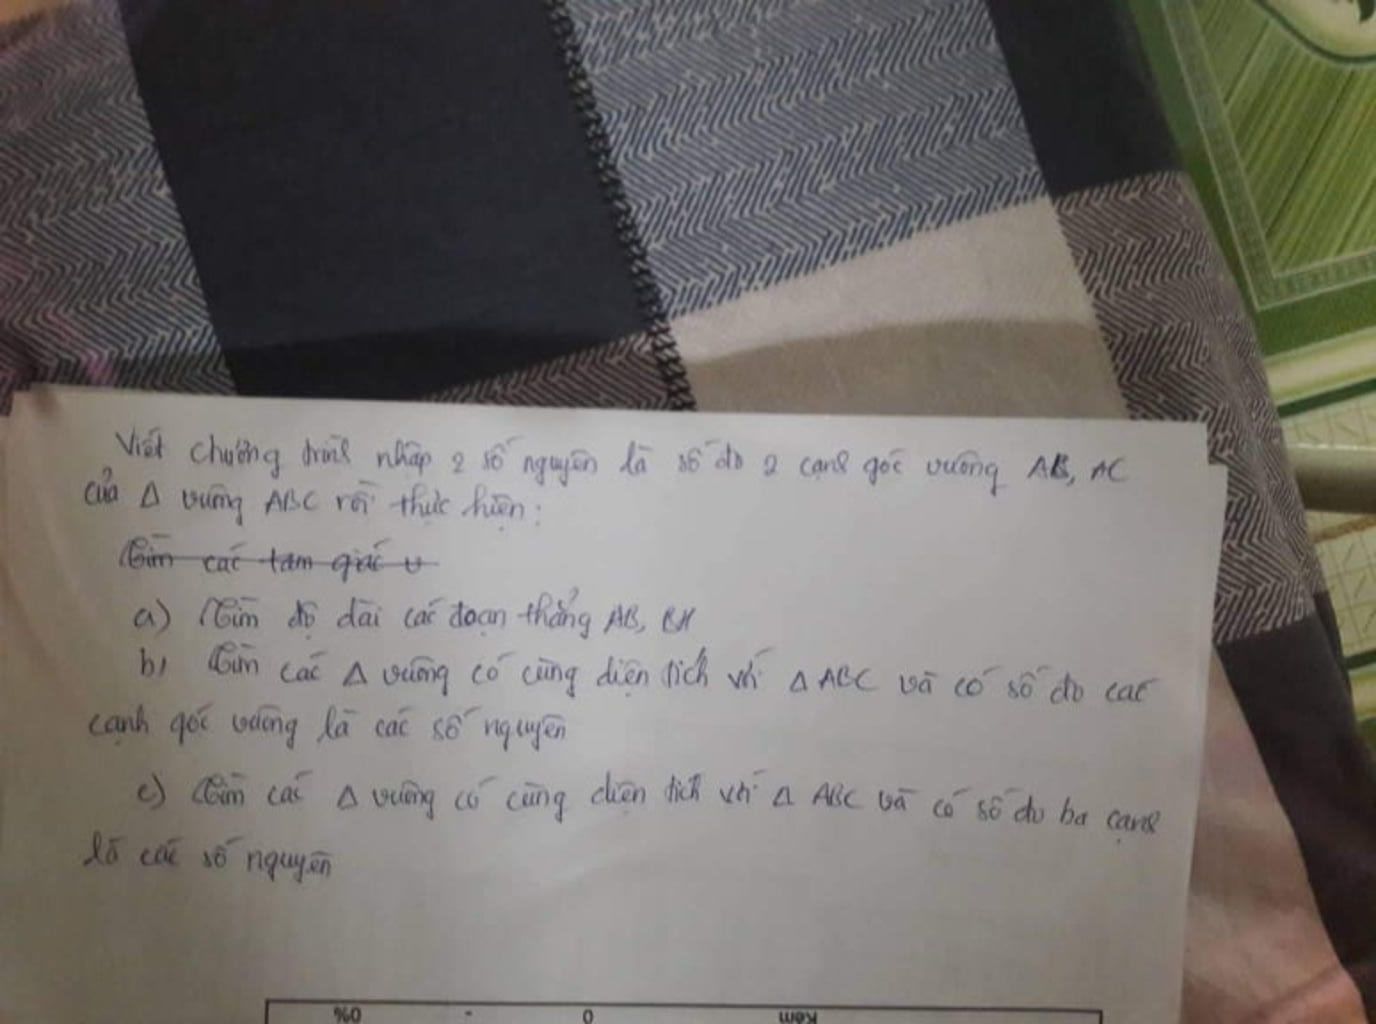 Viết chương trình nhập 2 số nguyên là số đo 2 cạnh góc vuông AB, AC
của Δ vuông ABC rồi thực hiện:
Tìm các tam giác v
a) Tìm độ dài các đoạn thẳng AB, BH
b) Tìm các Δ vuông có cùng diện tích với Δ ABC và có số đo các
cạnh góc vuông là các số nguyên
c) Tìm các Δ vuông có cùng diện tích với Δ ABC và có số đo ba cạnh
là các số nguyên
Kém 0 - 0%